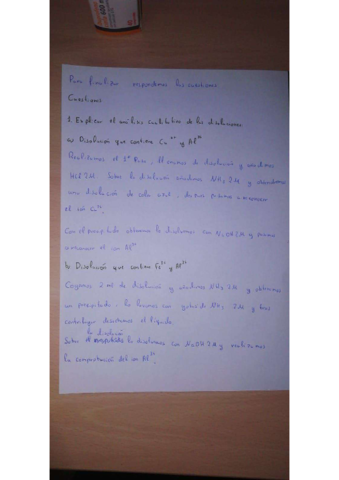 Para finalizar respondemos las cuestiones
Cuestiones
1. Explicar el análisis cualitativo de las disoluciones
a) Disolución que contiene Cu²⁺ y Al³⁺
Realizamos el 1º Paso, de disolución y añadimos
HCl 2M. Sobre la disolución añadimos NH₃ 2M y obtenemos
una disolución de color azul, de esta forma
el ión Cu²⁺.
Con el precipitado obtenemos lo disolvemos con NaOH 2M y
el ion Al³⁺
b) Disolución que contiene Fe³⁺ y Al³⁺
Cogemos 2 ml de disolución y añadimos NH₃ 2M y obtenemos
un precipitado, lo lavamos con gotas de NH₃ 2M y tras
centrifugar desechamos el líquido.
la disolución
Sobre el precipitado lo disolvemos con NaOH 2M y realizamos
la comprobación del ion Al³⁺.